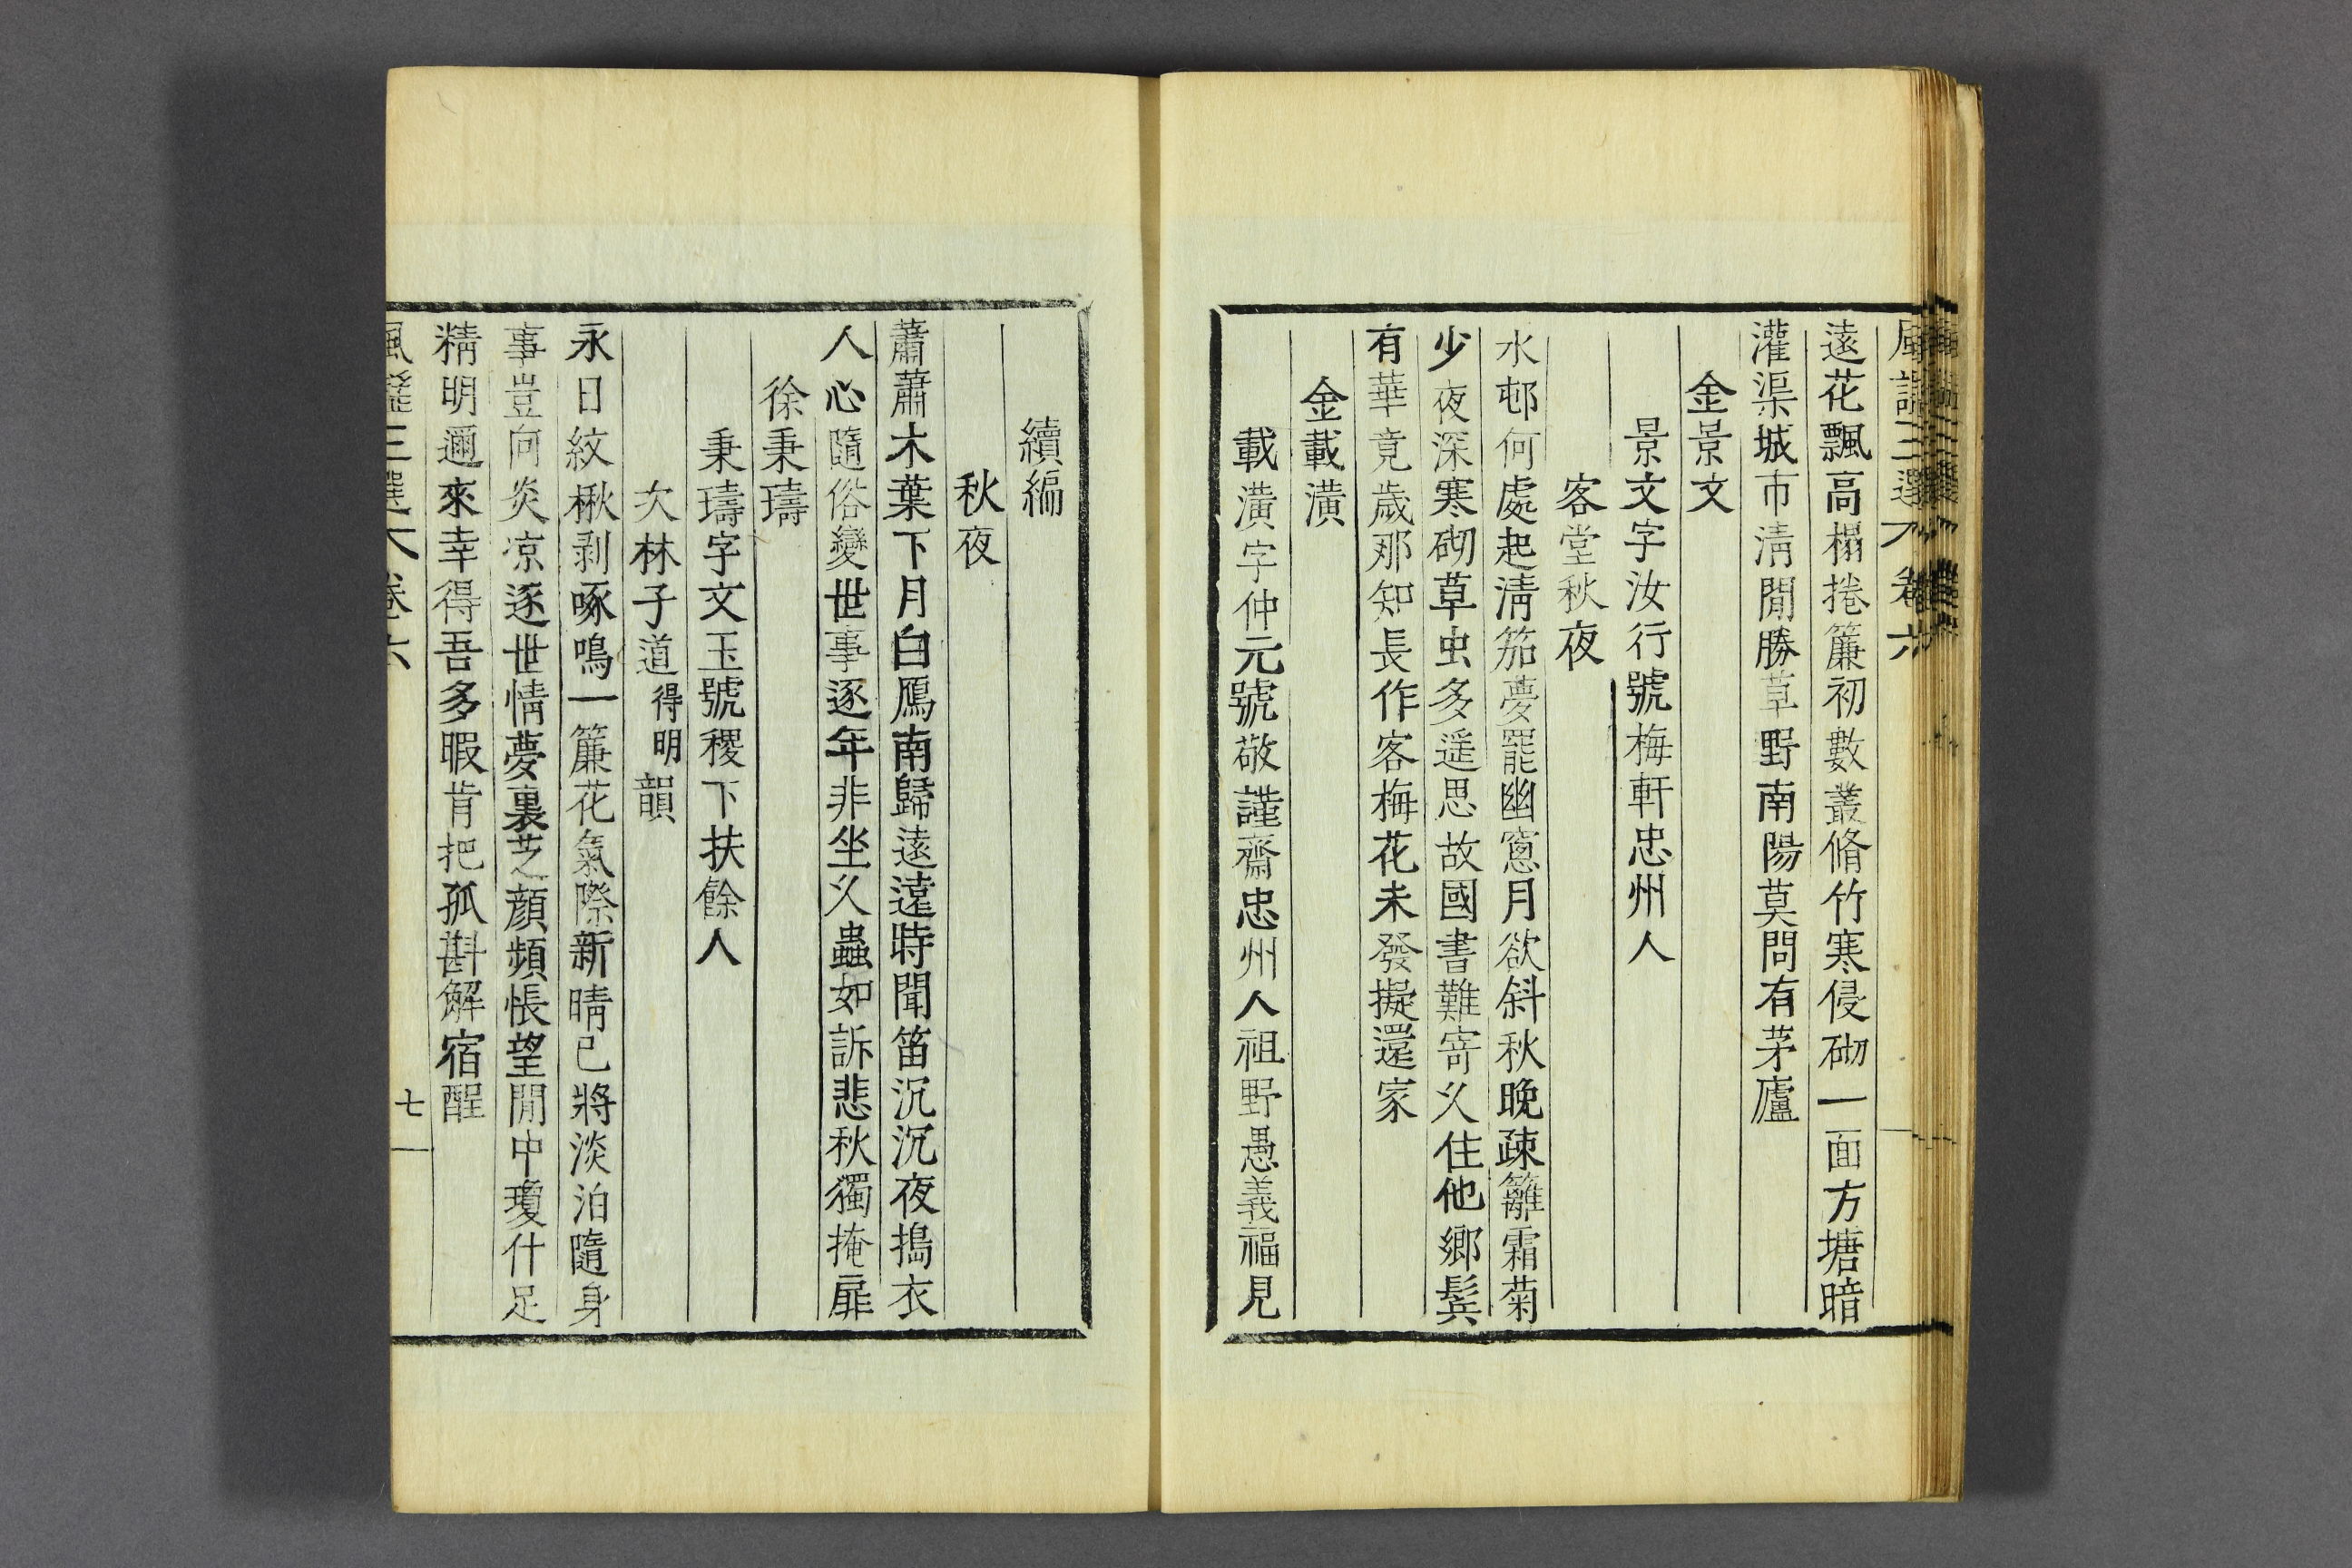 風謠三選 卷六
遠花飄高榻捲簾初數叢脩竹寒侵砌一面方塘暗
灌渠城市淸閒勝草野南陽莫問有茅廬
金景文
景文字汝行號梅軒忠州人
客堂秋夜
水邨何處起淸笳夢罷幽窓月欲斜秋晩疎籬霜菊
少夜深寒砌草虫多遥思故國書難寄久住他鄉鬂
有華竟歲那知長作客梅花未發擬還家
金載潢
載潢字仲元號敬謹齋忠州人祖野愚義福見
續編
秋夜
蕭蕭木葉下月白鴈南歸遠遠時聞笛沉沉夜搗衣
人心隨俗變世事逐年非坐久蟲如訴悲秋獨掩扉
徐秉璹
秉璹字文玉號稷下扶餘人
次林子道得明韻
永日紋楸剥啄鳴一簾花氣際新晴已將淡泊隨身
事豈向炎凉逐世情夢裏芝顔頻悵望閒中瓊什足
精明邇來幸得吾多暇肯把孤斟解宿酲
風謠三選 卷六 七